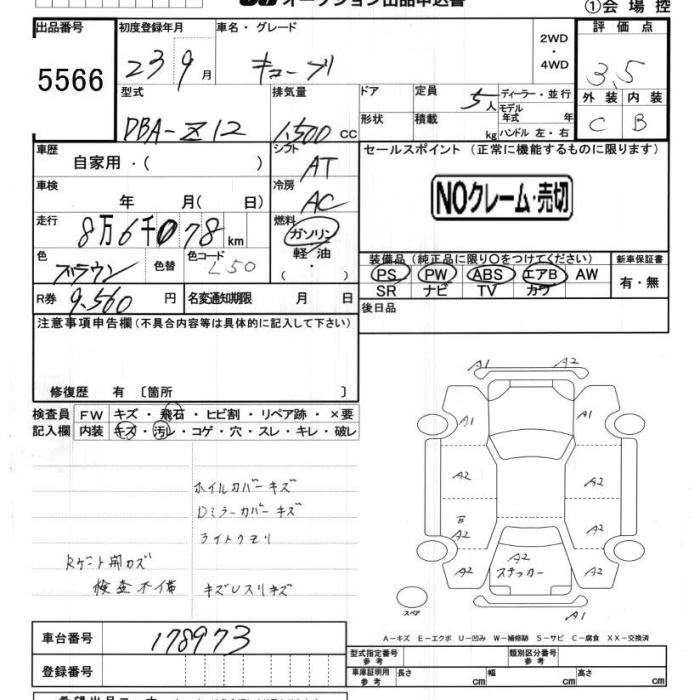 オークション出品申込書
①会場控
出品番号 初度登録年月 車名・グレード 2WD・4WD 評価点
5566 23 9月 キューブ 3.5
型式 排気量 ドア 定員 5人 ディーラー・並行 外装 内装
DBA-Z12 1,500 cc 形状 積載 kg モデル年式 年 ハンドル 左・右 C B
車歴 自家用・( ) シフト AT セールスポイント (正常に機能するものに限ります)
車検 年 月( 日) 冷房 AC NOクレーム・売切
走行 8万6千078km 燃料 ガソリン 軽油 ( ・ )
色 ブラウン 色替 色コード L50 装備品 (純正品に限り○をつけてください) 新車保証書
PS PW ABS エアB AW 有・無
SR ナビ TV カワ
R券 9,560円 名変通知期限 月 日 後日品
注意事項申告欄 (不具合内容等は具体的に記入して下さい)
修復歴 有 〔箇所 〕
検査員 FW キズ・飛石・ヒビ割・リペア跡・×要
記入欄 内装 キズ・汚レ・コゲ・穴・スレ・キレ・破レ
ホイルカバーキズ
Dミラーカバーキズ
ライトクモリ
検査不備 キズUスリキズ
A1 A2
A1 A1
A2 A2
A2 A2
A2 A2 A2
ステッカー
A1
スペア
A－キズ E－エクボ U－凹み W－補修跡 S－サビ C－腐食 XX－交換済
車台番号 178973 型式指定番号 参考 類別区分番号 参考
登録番号 車庫証明用 参考 長さ cm 幅 cm 高さ cm